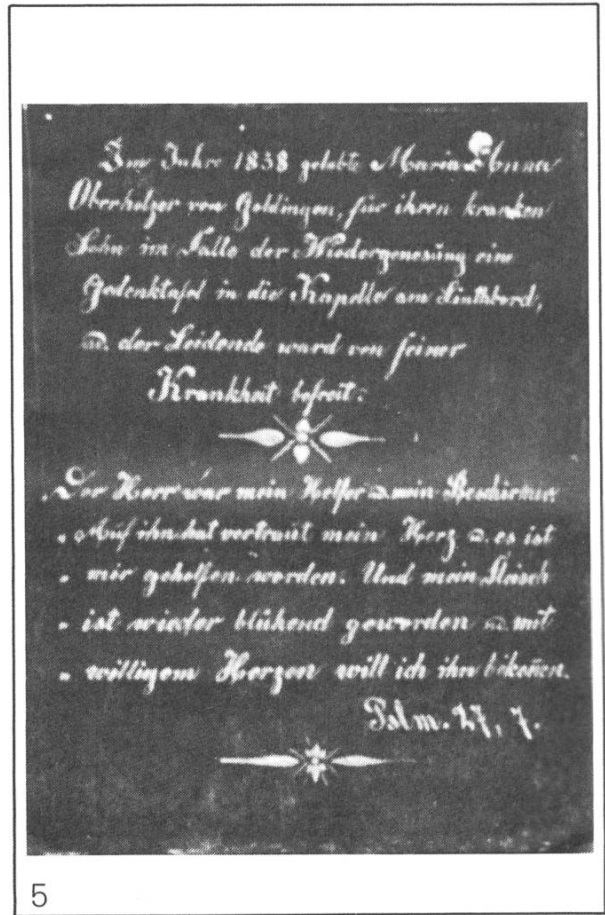 Im Jahre 1838 gelobte Maria Anna
Oberholzer von Goldingen, für ihren kranken
Sohn im Falle der Wiedergenesung eine
Gedenktafel in die Kapelle am Linthbord,
u. der Leidende ward von seiner
Krankheit befreit:
„Der Herr war mein Helfer u. mein Beschirmer.
„ Auf ihn hat vertraut mein Herz u. es ist
„ mir geholfen worden. Und mein Fleisch
„ ist wieder blühend geworden u. mit
„ willigem Herzen will ich ihn bekeñen.
Pslm. 27, 7.
5